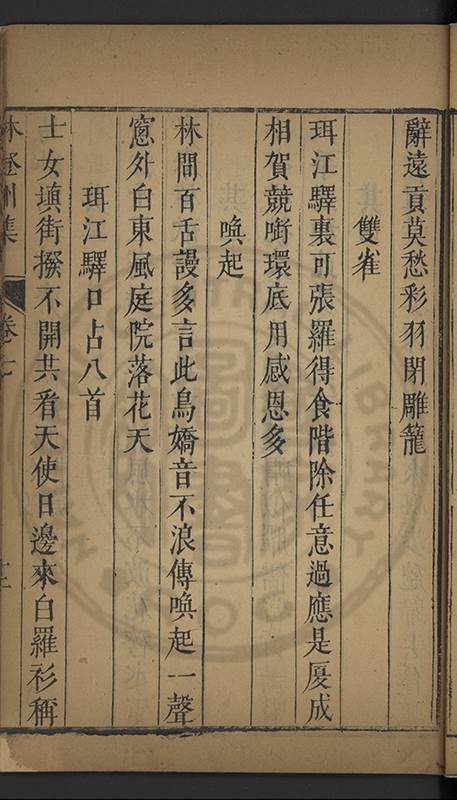 辭遠貢莫愁彩羽閉雕籠
雙雀
珥江驛裏可張羅得食階除任意過應是厦成
相賀競啣環底用感恩多
喚起
林間百舌謾多言此鳥嬌音不浪傳喚起一聲
窻外白東風庭院落花天
珥江驛口占八首
士女塡街撥不開共看天使日邊來白羅衫稱
林登州集 卷七